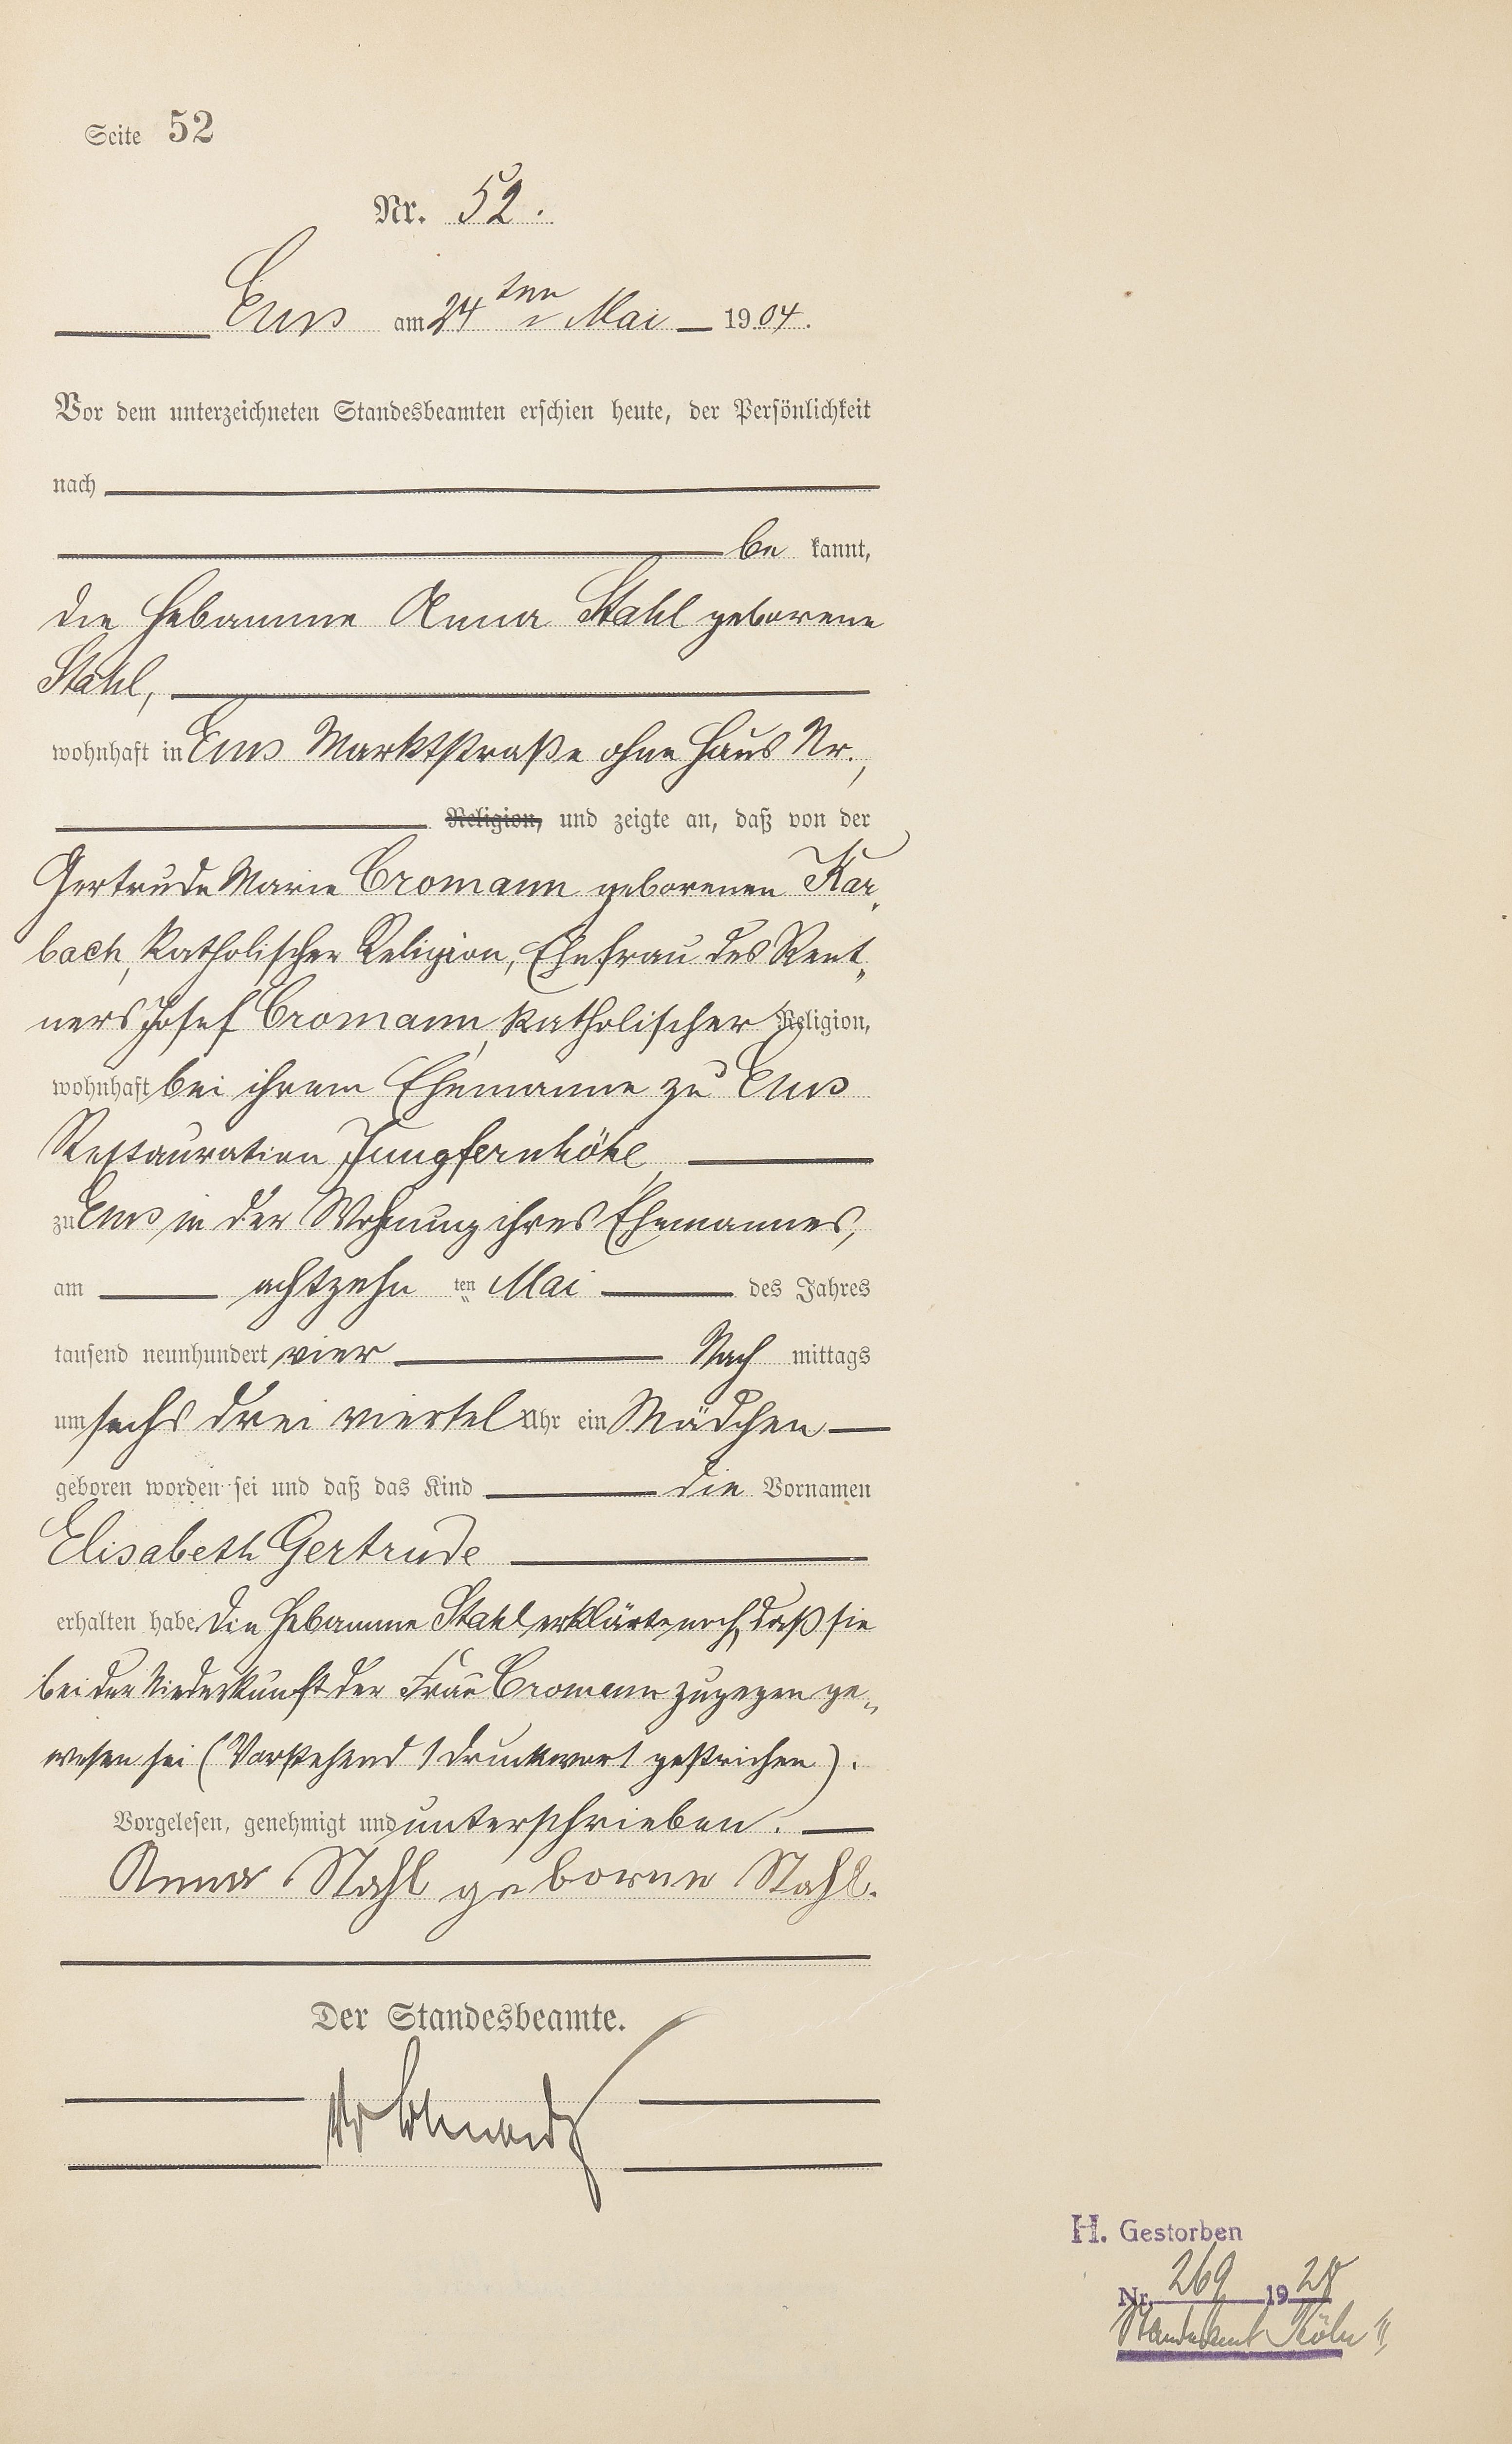 Seite 52
Nr. 52.
Ems am 24ten Mai 1904.
Vor dem unterzeichneten Standesbeamten erschien heute, der Persönlichkeit
nach
be kannt,
die Hebamme Anna Stahl geborene
Stahl,
wohnhaft in Ems Marktstraße ohne Haus Nr.,
Religion, und zeigte an, daß von der
Gertrude Marie Cromann geborenen Kar-
bach, katholischer Religion, Ehefrau des Rent-
ners Josef Cromann, katholischer Religion,
wohnhaft bei ihrem Ehemanne zu Ems
Restauration Jungfernhöhe,
zu Ems in der Wohnung ihres Ehemannes,
am achtzehn ten Mai des Jahres
tausend neunhundert vier Nach mittags
um sechs drei viertel Uhr ein Mädchen
geboren worden sei und daß das Kind die Vornamen
Elisabeth Gertrude
erhalten habe. Die Hebamme Stahl erklärte noch, daß sie
bei der Niederkunft der Frau Cromann zugegen ge-
wesen sei (Vorstehend 1 Druckwort gestrichen).
Vorgelesen, genehmigt und unterschrieben.
Anna Stahl geborne Stahl.
Der Standesbeamte.
H. Gestorben
Nr. 269 1928
Standesamt Köln III